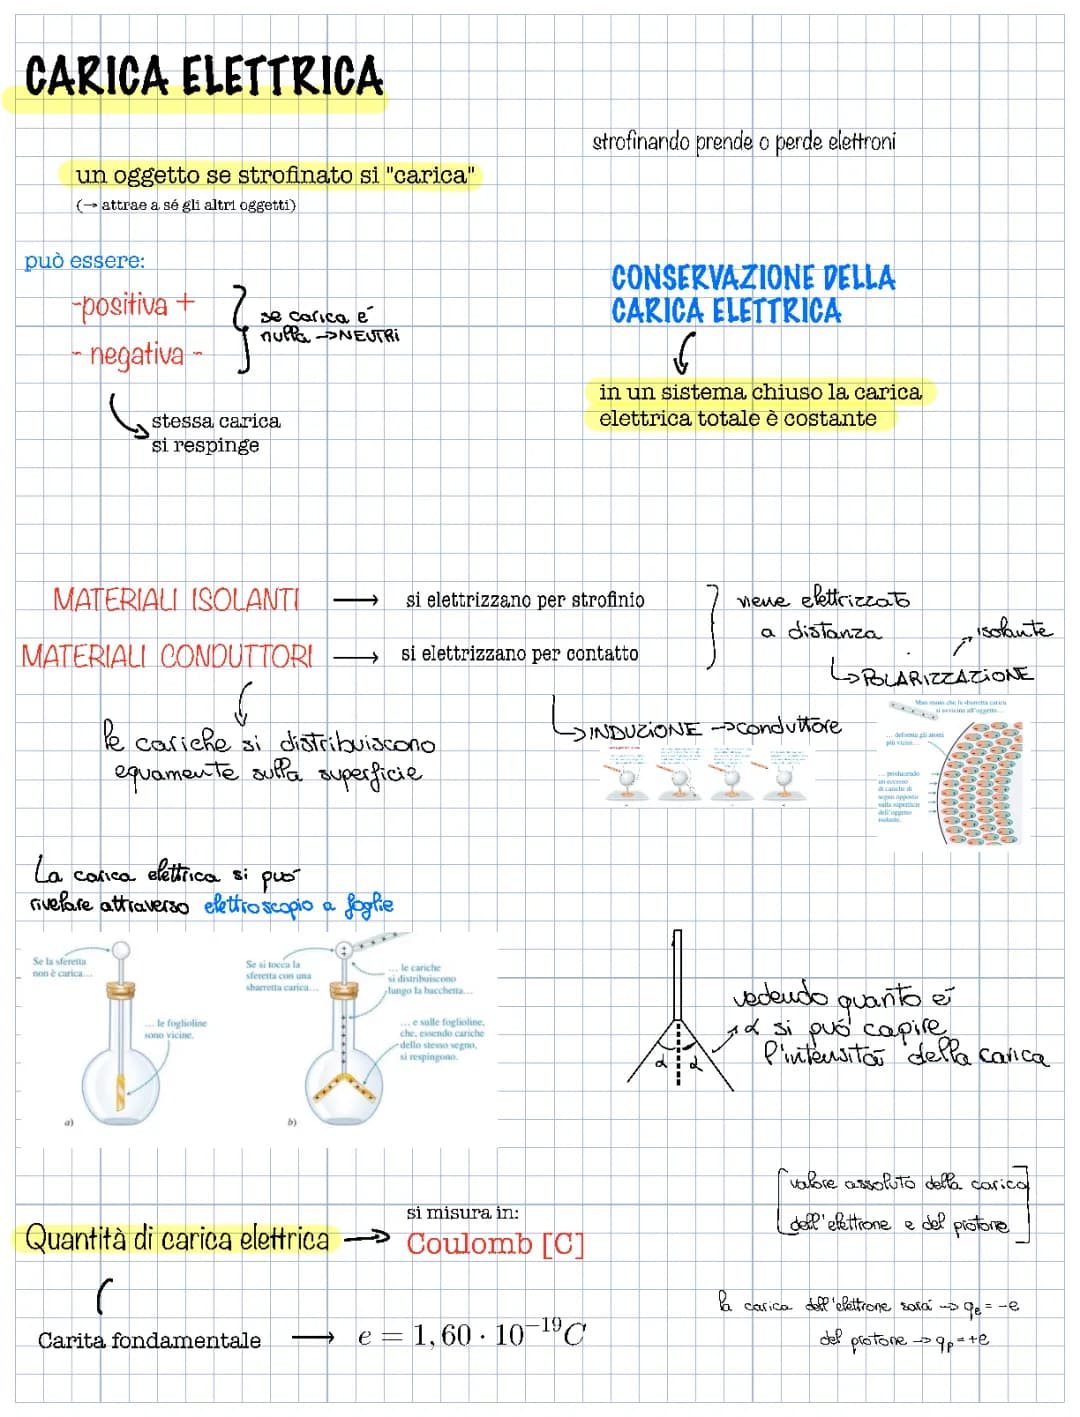 CARICA ELETTRICA
strofinando prende o perde elettroni
un oggetto se strofinato si "carica"
(→ attrae a sé gli altri oggetti)
può essere:
-positiva +
- negativa -
se carica é
nulla →NEUTRI
stessa carica
si respinge
CONSERVAZIONE DELLA
CARICA ELETTRICA
in un sistema chiuso la carica
elettrica totale è costante
MATERIALI ISOLANTI → si elettrizzano per strofinio
MATERIALI CONDUTTORI → si elettrizzano per contatto
viene elettrizzato
a distanza
isolante
↳POLARIZZAZIONE
↳INDUZIONE →conduttore
le cariche si distribuiscono
equamente sulla superficie
Man mano che la sbarretta carica
si avvicina all'oggetto...
... deforma gli atomi
più vicini...
... producendo
un eccesso
di cariche di
segno opposto
sulla superficie
dell'oggetto
isolante.
La carica elettrica si puó
rivelare attraverso elettroscopio a foglie
Se la sferetta
non è carica...
... le foglioline
sono vicine.
a)
Se si tocca la
sferetta con una
sbarretta carica...
... le cariche
si distribuiscono
lungo la bacchetta...
... e sulle foglioline,
che, essendo cariche
dello stesso segno,
si respingono.
b)
α α
vedendo quanto é
α si puó capire
l'intensitá della carica
Quantità di carica elettrica →
si misura in:
Coulomb [C]
valore assoluto della carica
dell'elettrone e del protone
Carita fondamentale → e = 1,60 · 10⁻¹⁹C
la carica dell'elettrone sará → qₑ = -e
del protone → qₚ = +e